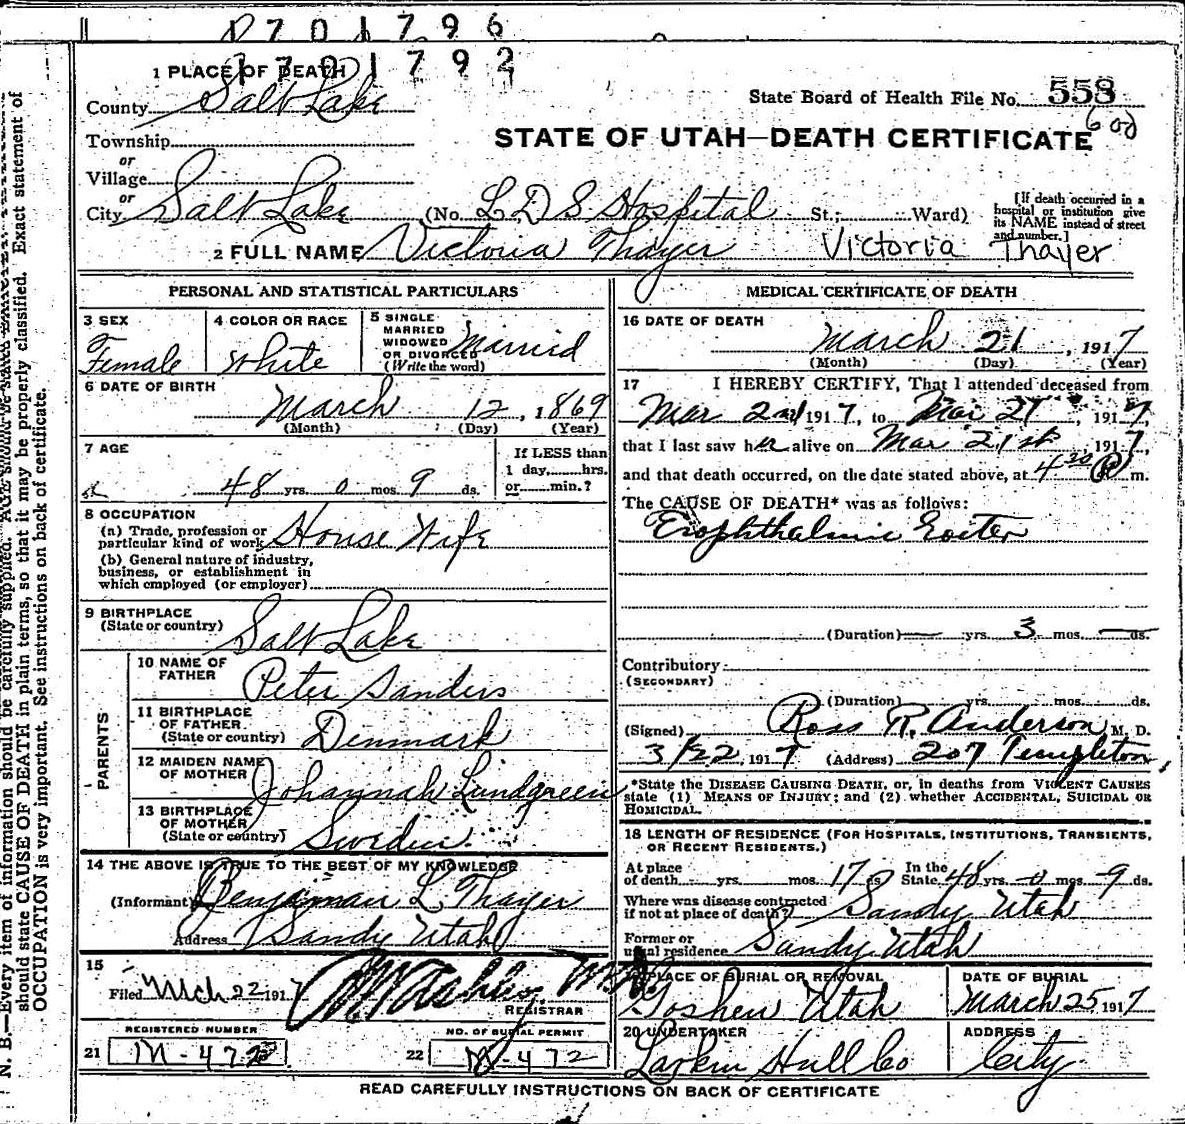 1701796
1701792
1 PLACE OF DEATH
County Salt Lake
State Board of Health File No. 558
600
Township
STATE OF UTAH—DEATH CERTIFICATE
or
Village
or
City Salt Lake (No. L D S Hospital St.; Ward)
[If death occurred in a hospital or institution give its NAME instead of street and number.]
2 FULL NAME Victoria Thayer Victoria Thayer
PERSONAL AND STATISTICAL PARTICULARS
3 SEX
Female
4 COLOR OR RACE
White
5 SINGLE
MARRIED
WIDOWED
OR DIVORCED
(Write the word)
Married
6 DATE OF BIRTH
March 12, 1869
(Month) (Day) (Year)
7 AGE
48 yrs. 0 mos. 9 ds.
If LESS than
1 day, hrs.
or min.?
8 OCCUPATION
(a) Trade, profession or
particular kind of work House Wife
(b) General nature of industry,
business, or establishment in
which employed (or employer)
9 BIRTHPLACE
(State or country) Salt Lake
PARENTS
10 NAME OF
FATHER Peter Sanders
11 BIRTHPLACE
OF FATHER
(State or country) Denmark
12 MAIDEN NAME
OF MOTHER Johannah Lundgreen
13 BIRTHPLACE
OF MOTHER
(State or country) Sweden
14 THE ABOVE IS TRUE TO THE BEST OF MY KNOWLEDGE
(Informant) Benjiman L Thayer
Address Sandy Utah
15
Filed Mch 22 1917
REGISTRAR
REGISTERED NUMBER
21 M-472
NO. OF BURIAL PERMIT
22 M-472
MEDICAL CERTIFICATE OF DEATH
16 DATE OF DEATH
March 21, 1917
(Month) (Day) (Year)
17 I HEREBY CERTIFY, That I attended deceased from
Mar 2nd 1917, to Mar 21, 1917,
that I last saw her alive on Mar 21st 1917,
and that death occurred, on the date stated above, at 4 30 P m.
The CAUSE OF DEATH* was as follows:
Exophthalmic Goiter
(Duration) — yrs. 3 mos. — ds.
Contributory
(SECONDARY)
(Duration) yrs. mos. ds.
(Signed) Ross R. Anderson M. D.
3/22, 1917 (Address) 207 Templeton
*State the DISEASE CAUSING DEATH, or, in deaths from VIOLENT CAUSES
state (1) MEANS OF INJURY; and (2) whether ACCIDENTAL, SUICIDAL OR
HOMICIDAL.
18 LENGTH OF RESIDENCE (FOR HOSPITALS, INSTITUTIONS, TRANSIENTS,
OR RECENT RESIDENTS.)
At place
of death yrs. mos. 17 ds.
In the
State 48 yrs. 0 mos. 9 ds.
Where was disease contracted
if not at place of death? Sandy Utah
Former or
usual residence Sandy Utah
19 PLACE OF BURIAL OR REMOVAL
Goshen Utah
DATE OF BURIAL
March 25 1917
20 UNDERTAKER
Larkin Hull Co
ADDRESS
City
READ CAREFULLY INSTRUCTIONS ON BACK OF CERTIFICATE
N. B.—Every item of information should be carefully supplied. AGE should be
should state CAUSE OF DEATH in plain terms, so that it may be properly classified. Exact statement of
OCCUPATION is very important. See instructions on back of certificate.